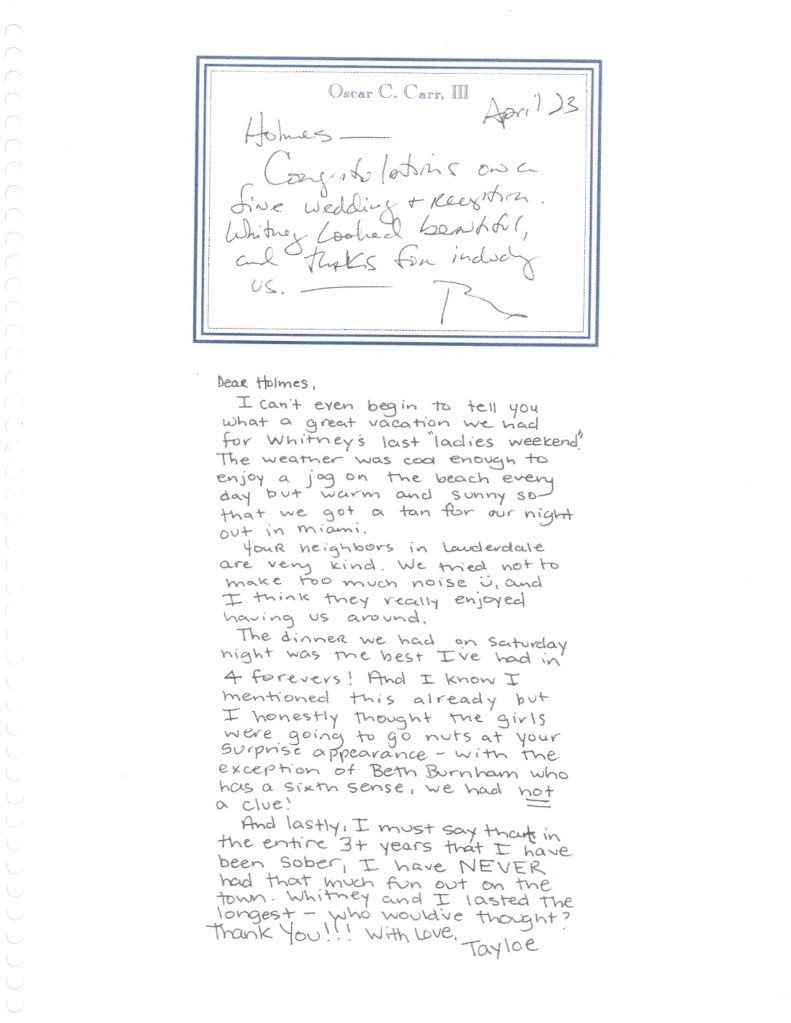 Oscar C. Carr, III
April 23
Holmes —
Congratulations on a
fine wedding + reception.
Whitney looked beautiful,
and thanks for including
us. —
Dear Holmes,
I can't even begin to tell you
what a great vacation we had
for Whitney's last "ladies weekend".
The weather was cool enough to
enjoy a jog on the beach every
day but warm and sunny so
that we got a tan for our night
out in miami.
Your neighbors in Lauderdale
are very kind. We tried not to
make too much noise ü, and
I think they really enjoyed
having us around.
The dinner we had on Saturday
night was the best I've had in
4 forevers! And I know I
mentioned this already but
I honestly thought the girls
were going to go nuts at your
surprise appearance - with the
exception of Beth Burnham who
has a sixth sense, we had not
a clue!
And lastly, I must say that in
the entire 3+ years that I have
been sober, I have NEVER
had that much fun out on the
town. Whitney and I lasted the
longest - who would've thought?
Thank You!!! With Love,
Tayloe